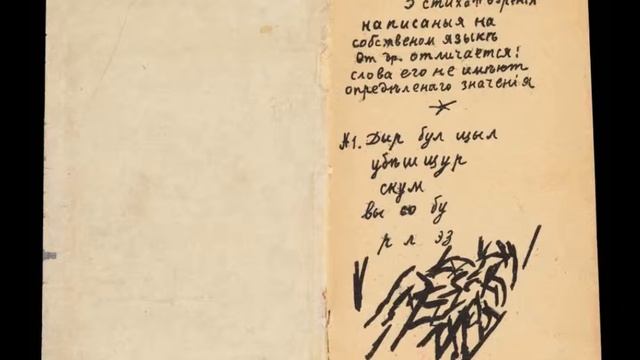 3 стихотворенія
написаныя на
собственом языкѣ
от др. отличается:
слова его не имѣют
опредѣленаго значенія
№1. Дыр бул щыл
убѣшщур
скум
вы со бу
р л эз